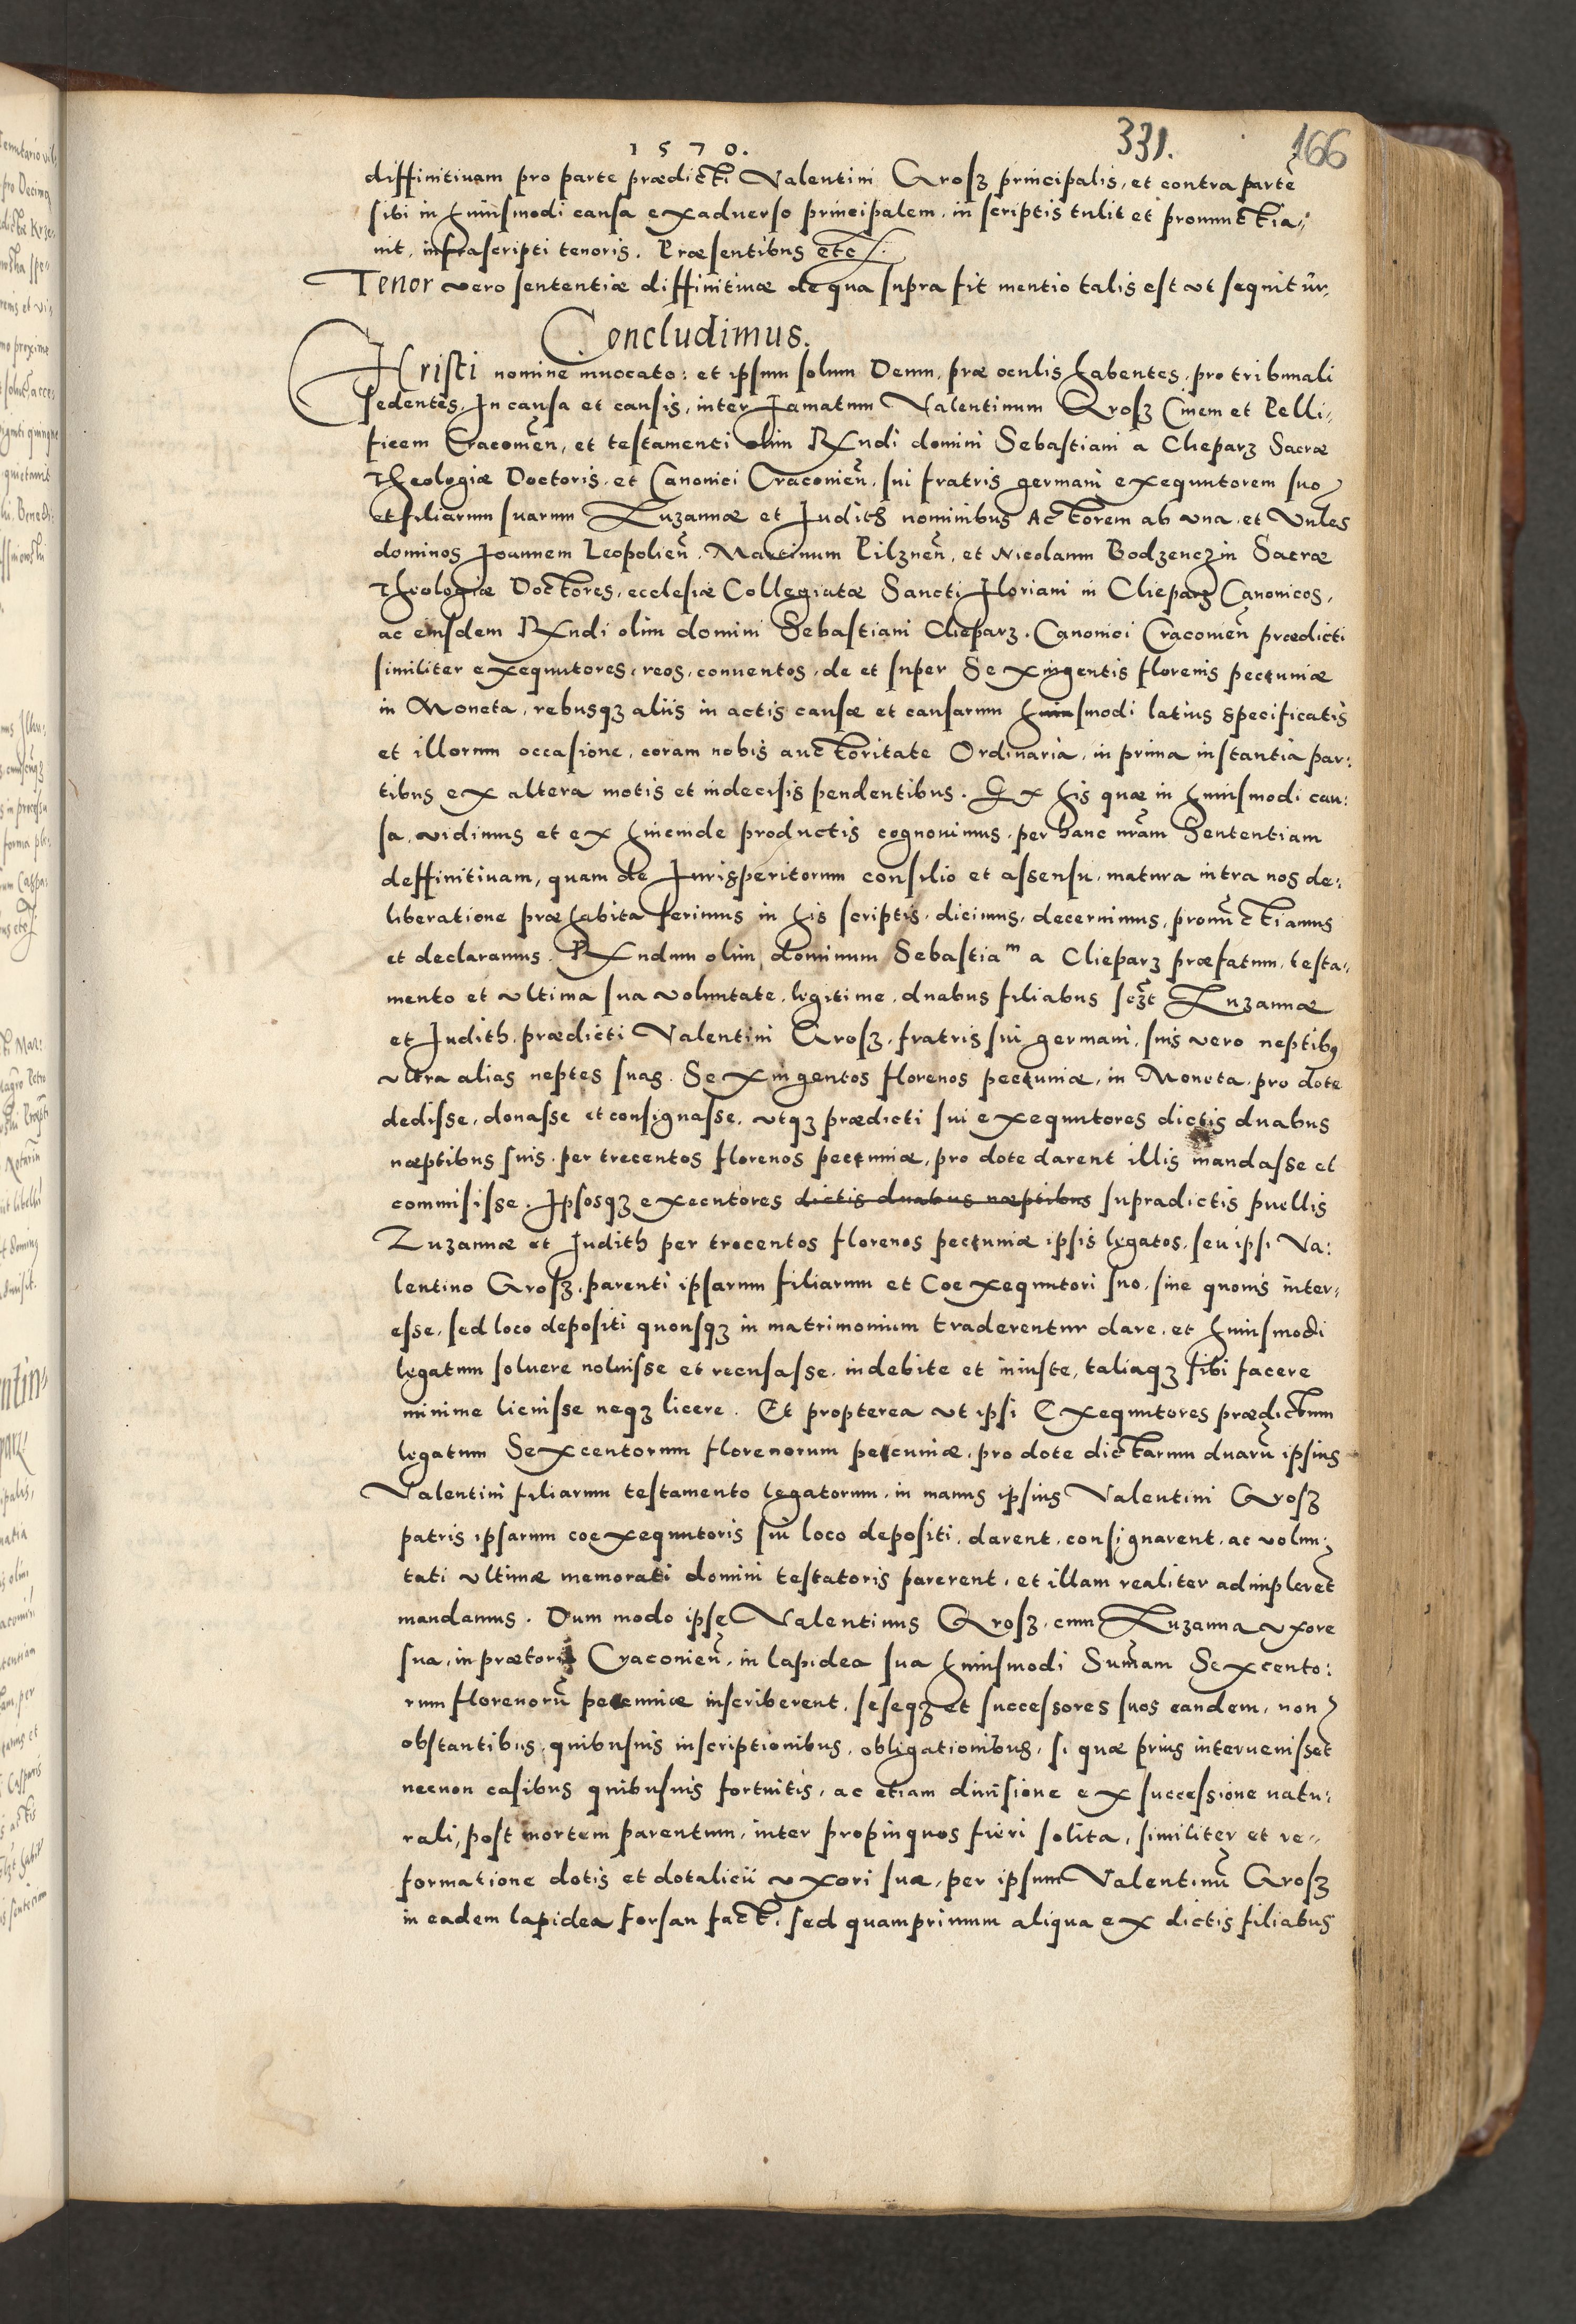 1570.
331.
166
diffinitiuam pro parte prædicti Valentini Grosz principalis, et contra parte͂
sibi in huiusmodi causa exaduerso principalem, in scriptis tulit et pronunctia„
uit, infrascripti tenoris. Præsentibus etc.
Tenor vero sententiæ diffinitiuæ de qua supra fit mentio talis est vt sequitur,
Concludimus.
Christi nomine inuocato: et ipsum solum Deum, præ oculis habentes, pro tribunali
sedentes, In causa et causis, inter famatum Valentinum Grosz Ciuem et Pelli„
ficem Cracouien͂, et testamenti olim Rxndi domini Sebastiani a Cleparz Sacræ
Theologiæ Doctoris, et Canonici Cracouien͂, sui fratris germani exequutorem suo
et filiarum suarum Zuzannæ et Judith nominibus Actorem ab vna, et Vnles
dominos Joannem Leopolien͂, Martinum Pilznen͂, et Nicolaum Bodzenczin Sacræ
Theologiæ Doctores, ecclesiæ Collegiatæ Sancti Floriani in Clieparz Canonicos,
ac eiusdem Rxndi olim domini Sebastiani Clieparz, Canonici Cracouien͂ prædicti
similiter exequutores, reos, conuentos, de et super Sexingentis florenis pecuniæ
in Moneta, rebusqz aliis in actis causæ et causarum huiusmodi latius specificatis
et illorum occasione, coram nobis auctoritate Ordinaria, in prima instantia par:
tibus ex altera motis et indecisis pendentibus. Ex his quæ in huiusmodi cau:
sa, vidimus et ex hincinde productis cognouimus, per hanc nr͂am Sententiam
deffinitiuam, quam de Jurisperitorum consilio et assensu, matura intra nos de:
liberatione præhabita ferimus in his scriptis, dicimus, decernimus, pronu͂ctiamus
et declaramus, Rxndum olim dominum Sebastiaᵐ a Clieparz præfatum, testa„
mento et vltima sua voluntate, legitime, duabus filiabus sczt Zuzannæ
et Judith, prædicti Valentini Grosz, fratris sui germani, suis vero neptibq
vltra alias neptes suas. Sexingentos florenos pecuniæ, in Moneta, pro dote
dedisse, donasse et consignasse, vtqz prædicti sui exequutores dictis duabus
næptibus suis, per trecentos florenos pecuniæ, pro dote darent illis mandasse et
commisisse. Ipsosqz executores dictis duabus næptibus supradictis puellis
Zuzannæ et Judith per trecentos florenos pecuniæ ipsis legatos, seu ipsi Va:
lentino Grosz, parenti ipsarum filiarum et Coexequutori suo, sine quouis inter„
esse, sed loco depositi quousqz in matrimonium traderentur dare, et huiusmodi
legatum soluere noluisse et recusasse, indebite et iniuste, taliaqz sibi facere
minime licuisse neqz licere. Et propterea vt ipsi Exequutores prædictum
legatum Sexcentorum florenorum pecuniæ, pro dote dictarum duaru͂ ipsius
Valentini filiarum testamento legatorum, in manus ipsius Valentini Grosz
patris ipsarum coexequutoris sui loco depositi, darent, consignarent, ac volun:
tati vltimæ memorati domini testatoris parerent, et illam realiter adimplere͂t
mandamus. Dum modo ipse Valentinus Grosz, cum Zuzanna vxore
sua, in prætorio Cracouien͂, in lapidea sua huiusmodi Sum͂am Sexcento:
rum florenoru͂ pecuniæ inscriberent, seseqz et successores suos eandem, non
obstantibus, quibusuis inscriptionibus, obligationibus, si quæ prius interuenisse͂t
necnon casibus quibusuis fortuitis, ac etiam diuisione ex successione natu:
rali, post mortem parentum, inter propinquos fieri solita, similiter et re„
formatione dotis et dotalicii vxori suæ, per ipsum Valentinu͂ Grosz
in eadem lapidea forsan fact͂, sed quamprimum aliqua ex dictis filiabus